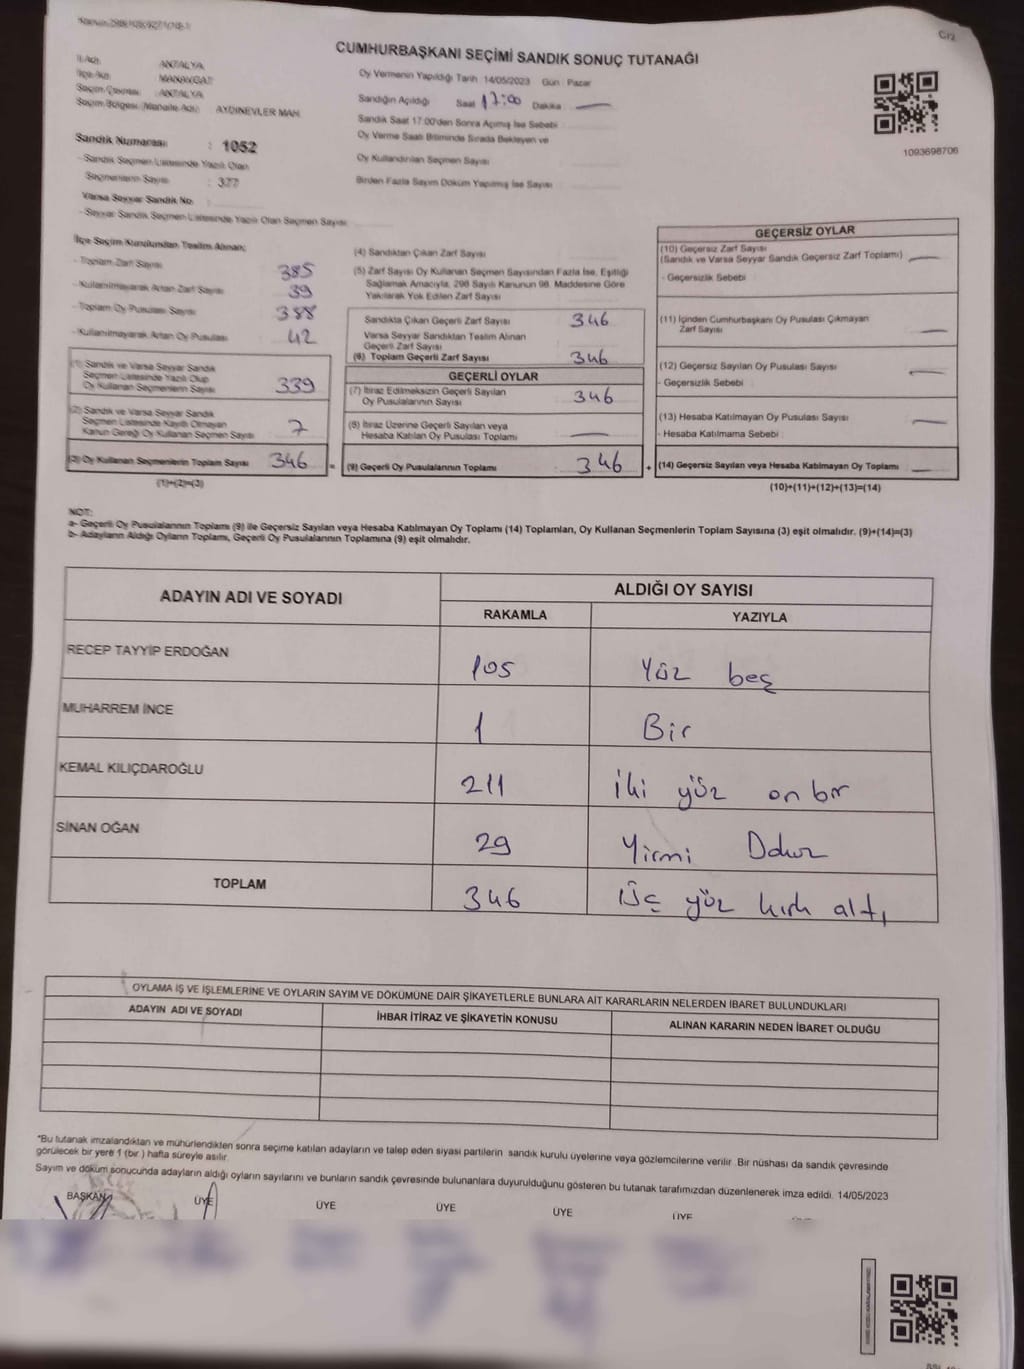 CUMHURBAŞKANI SEÇİMİ SANDIK SONUÇ TUTANAĞI
C12
İl Adı : ANTALYA
İlçe Adı : MANAVGAT
Seçim Çevresi : ANTALYA
Seçim Bölgesi (Mahalle Adı) : AYDINEVLER MAH.
Sandık Numarası : 1052
- Sandık Seçmen Listesinde Yazılı Olan
Seçmenlerin Sayısı : 377
Varsa Seyyar Sandık No :
- Seyyar Sandık Seçmen Listesinde Yazılı Olan Seçmen Sayısı :
Oy Vermenin Yapıldığı Tarih 14/05/2023 Gün : Pazar
Sandığın Açıldığı Saat 17:00 Dakika —
Sandık Saat 17.00'den Sonra Açılmış İse Sebebi
Oy Verme Saati Bitiminde Sırada Bekleyen ve
Oy Kullandırılan Seçmen Sayısı
Birden Fazla Sayım Döküm Yapılmış İse Sayısı
1093698706
İlçe Seçim Kurulundan Teslim Alınan;
- Toplam Zarf Sayısı 385
- Kullanılmayarak Artan Zarf Sayısı 39
- Toplam Oy Pusulası Sayısı 388
- Kullanılmayarak Artan Oy Pusulası 42
(1) Sandık ve Varsa Seyyar Sandık
Seçmen Listesinde Yazılı Olup
Oy Kullanan Seçmenlerin Sayısı 339
(2) Sandık ve Varsa Seyyar Sandık
Seçmen Listesinde Kayıtlı Olmayan
Kanun Gereği Oy Kullanan Seçmen Sayısı 7
(3) Oy Kullanan Seçmenlerin Toplam Sayısı 346 =
(1)+(2)=(3)
(4) Sandıktan Çıkan Zarf Sayısı
(5) Zarf Sayısı Oy Kullanan Seçmen Sayısından Fazla İse, Eşitliği
Sağlamak Amacıyla, 298 Sayılı Kanunun 98. Maddesine Göre
Yakılarak Yok Edilen Zarf Sayısı
Sandıkta Çıkan Geçerli Zarf Sayısı 346
Varsa Seyyar Sandıktan Teslim Alınan
Geçerli Zarf Sayısı
(6) Toplam Geçerli Zarf Sayısı 346
GEÇERLİ OYLAR
(7) İtiraz Edilmeksizin Geçerli Sayılan
Oy Pusulalarının Sayısı 346
(8) İtiraz Üzerine Geçerli Sayılan veya
Hesaba Katılan Oy Pusulası Toplamı —
(9) Geçerli Oy Pusulalarının Toplamı 346 +
GEÇERSİZ OYLAR
(10) Geçersiz Zarf Sayısı
(Sandık ve Varsa Seyyar Sandık Geçersiz Zarf Toplamı) —
- Geçersizlik Sebebi
(11) İçinden Cumhurbaşkanı Oy Pusulası Çıkmayan
Zarf Sayısı —
(12) Geçersiz Sayılan Oy Pusulası Sayısı —
- Geçersizlik Sebebi
(13) Hesaba Katılmayan Oy Pusulası Sayısı —
- Hesaba Katılmama Sebebi
(14) Geçersiz Sayılan veya Hesaba Katılmayan Oy Toplamı —
(10)+(11)+(12)+(13)=(14)
NOT:
a- Geçerli Oy Pusulalarının Toplamı (9) ile Geçersiz Sayılan veya Hesaba Katılmayan Oy Toplamı (14) Toplamları, Oy Kullanan Seçmenlerin Toplam Sayısına (3) eşit olmalıdır. (9)+(14)=(3)
b- Adayların Aldığı Oyların Toplamı, Geçerli Oy Pusulalarının Toplamına (9) eşit olmalıdır.
ADAYIN ADI VE SOYADI ALDIĞI OY SAYISI
RAKAMLA YAZIYLA
RECEP TAYYİP ERDOĞAN 105 Yüz beş
MUHARREM İNCE 1 Bir
KEMAL KILIÇDAROĞLU 211 İki yüz on bir
SİNAN OĞAN 29 Yirmi Dokuz
TOPLAM 346 Üç yüz kırk altı
OYLAMA İŞ VE İŞLEMLERİNE VE OYLARIN SAYIM VE DÖKÜMÜNE DAİR ŞİKAYETLERLE BUNLARA AİT KARARLARIN NELERDEN İBARET BULUNDUKLARI
ADAYIN ADI VE SOYADI İHBAR İTİRAZ VE ŞİKAYETİN KONUSU ALINAN KARARIN NEDEN İBARET OLDUĞU
*Bu tutanak imzalandıktan ve mühürlendikten sonra seçime katılan adayların ve talep eden siyasi partilerin sandık kurulu üyelerine veya gözlemcilerine verilir. Bir nüshası da sandık çevresinde
görülecek bir yere 1 (bir) hafta süreyle asılır.
Sayım ve döküm sonucunda adayların aldığı oyların sayılarını ve bunların sandık çevresinde bulunanlara duyurulduğunu gösteren bu tutanak tarafımızdan düzenlenerek imza edildi. 14/05/2023
BAŞKAN ÜYE ÜYE ÜYE ÜYE ÜYE